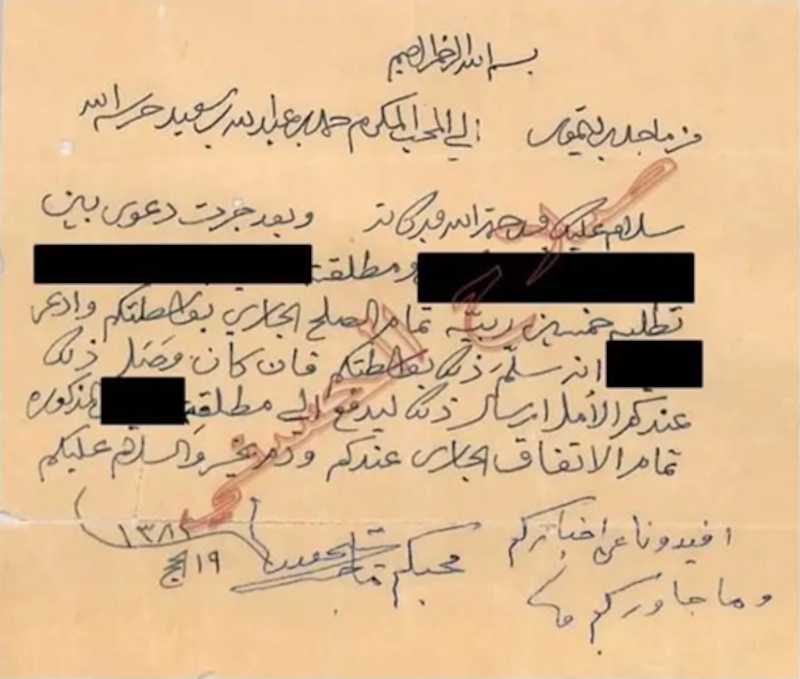 بسم الله الرحمن الرحيم
من ماجد بن خميس الى المحب المكرم حمد بن عبدالله بن سعيد حرسه الله
سلام عليك ورحمة الله وبركاته وبعد جرت دعوى بين
ومطلقته
تطلبه خمسين ربية تمام الصلح الجاري بواسطتكم وادعى
انه سلّم ذلك بواسطتكم فان كان وَصَل ذلك
عندكم الأمل ارسال ذلك ليدفع الى مطلقة المذكوره
تمام الاتفاق الجاري عندكم ودم بخير والسلام عليكم
افيدونا عن اخباركم
وما جاوركم
محبكم
١٩